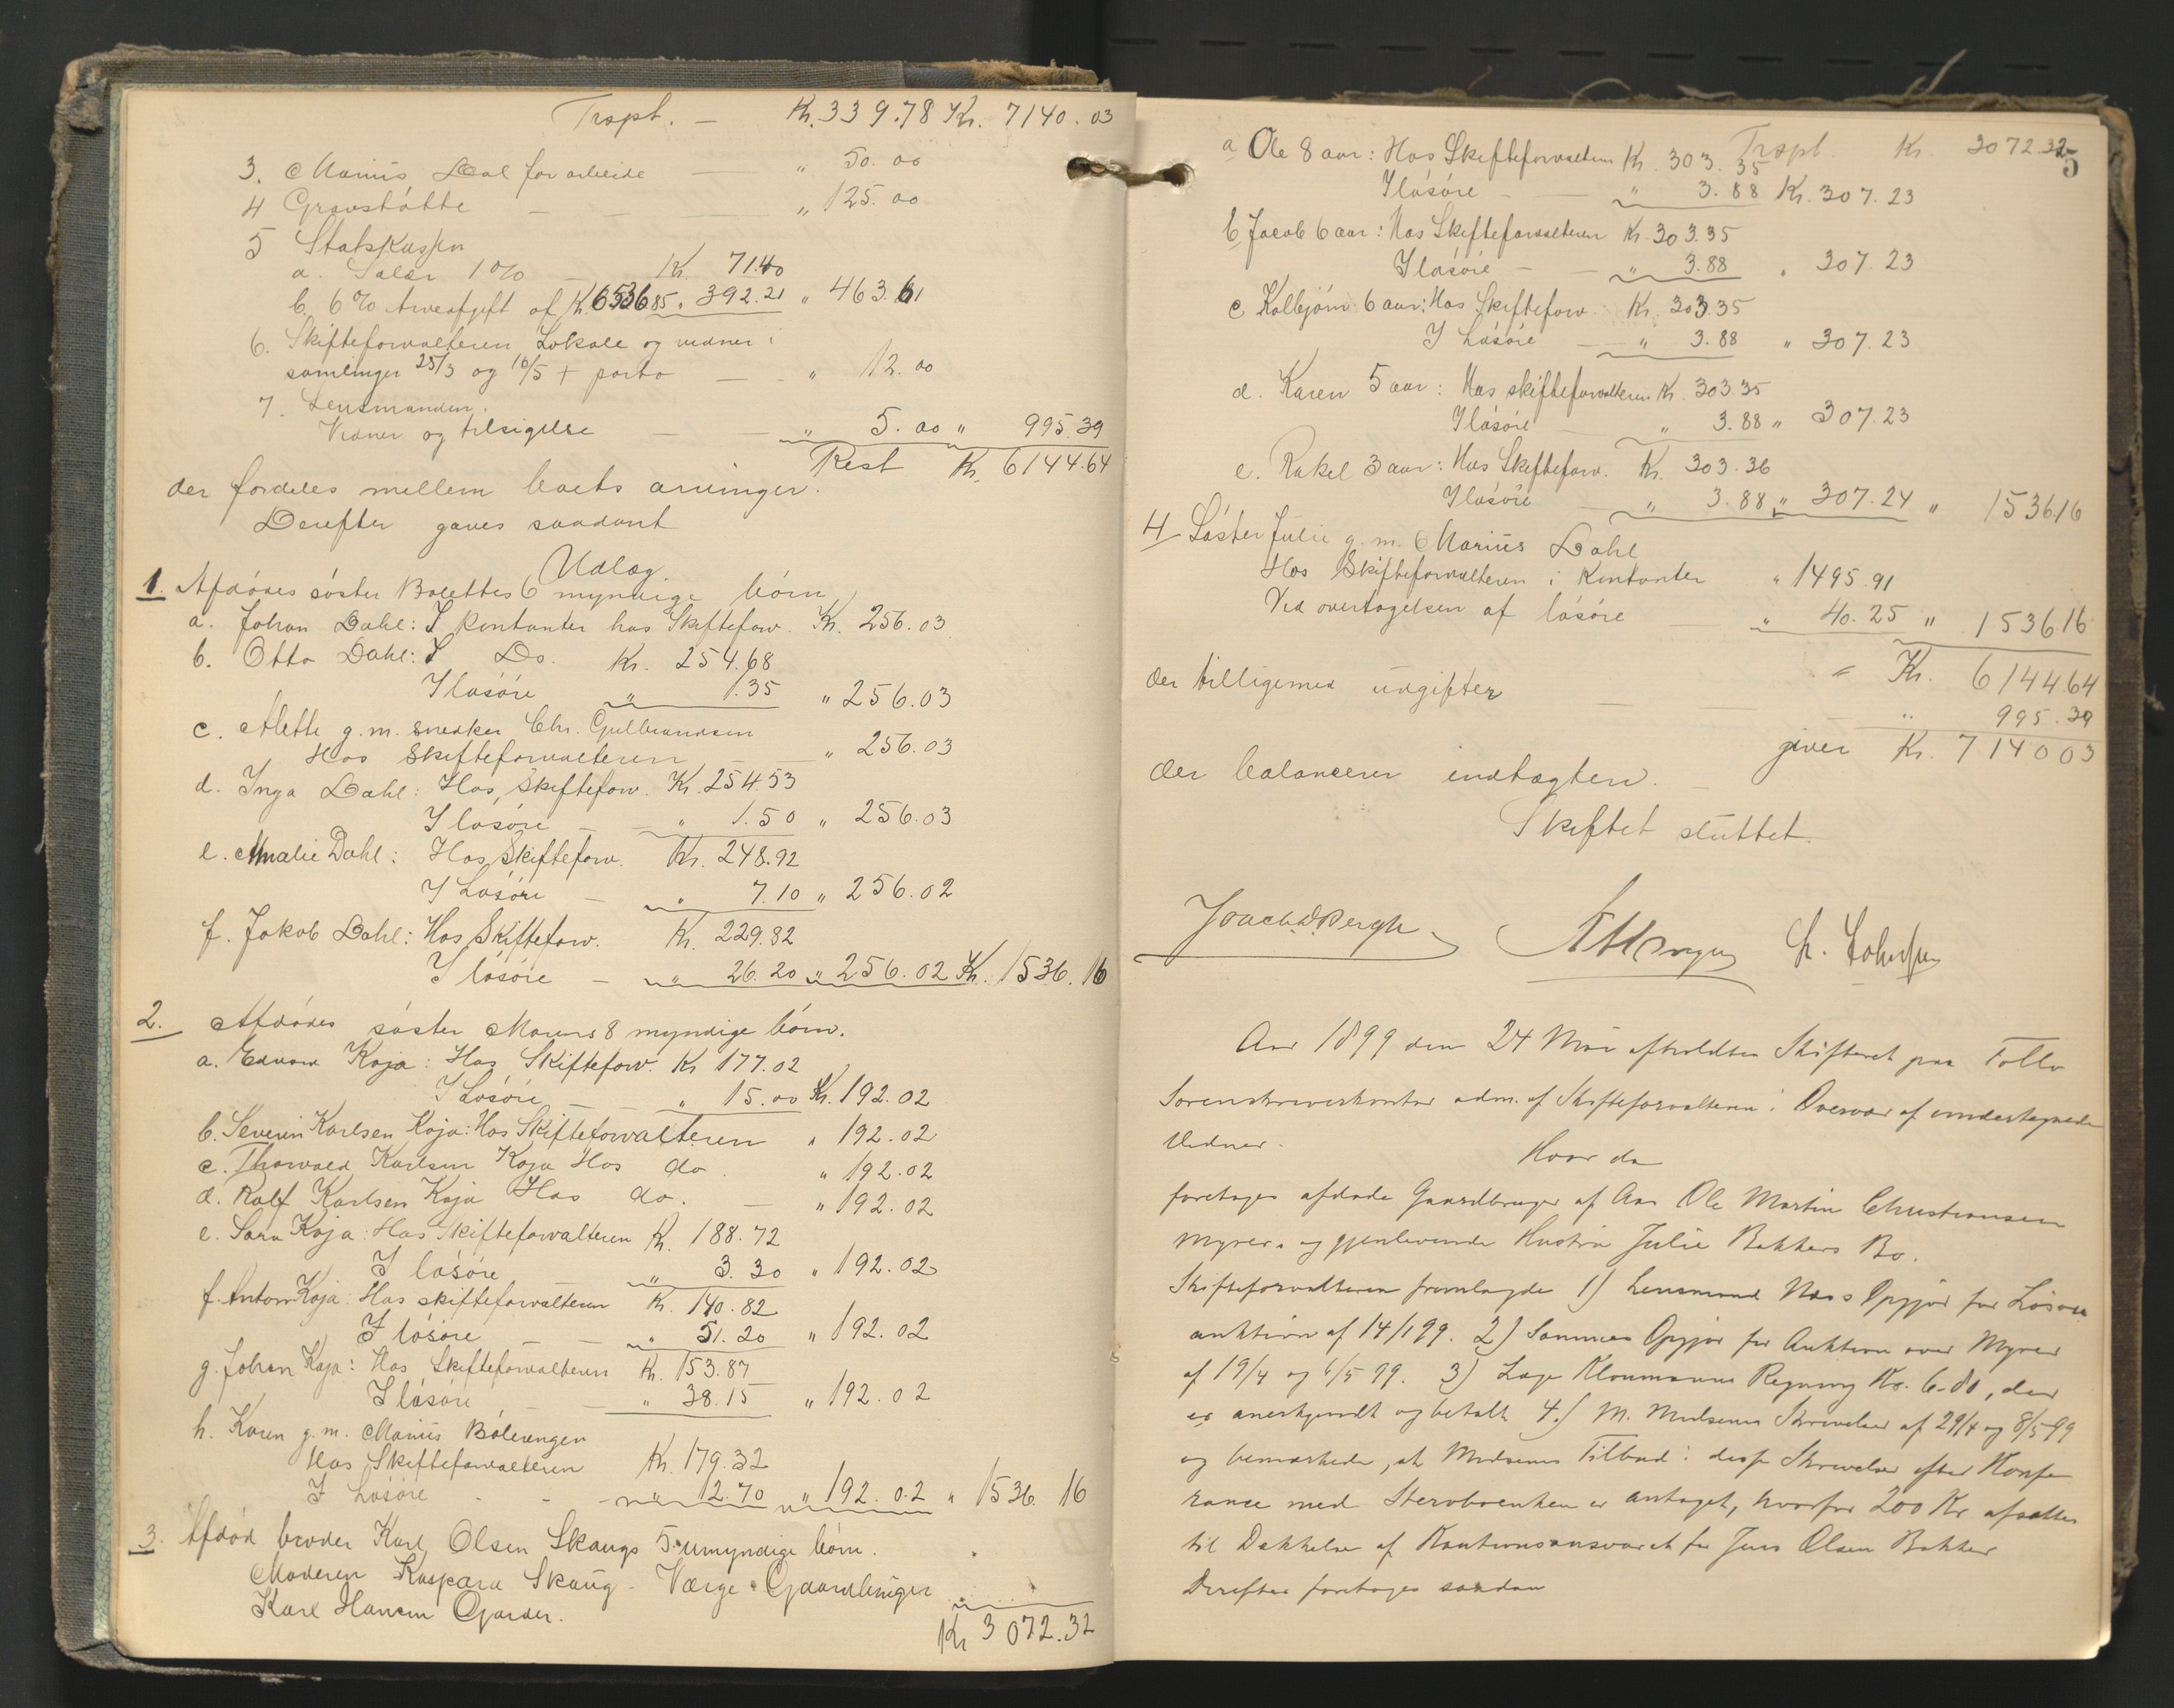 Trspt. — Kr. 339.78 Kr. 7140.03
3. Marius Dal for arbeide — " 50.00
4 Gravstøtte — — " 125.00
5 Statskassen
a. Salær 1% — Kr. 71.40
b. 6% Arveafgift af Kr. 6536.85 " 392.21 " 463.61
6. Skifteforvalteren Lokale og vidner i
samlinger 25/3 og 16/5 + porto — " 12.00
7. Lensmanden.
Vidner og tilsigelse — " 5.00 " 995.39
Rest Kr. 6144.64
der fordeles mellem boets arvinger.
Derefter gaves saadant
Udlæg.
1. Afdødes søster Bolettes 6 myndige børn
a. Johan Dahl: I kontanter hos Skifteforv. Kr. 256.03
b. Otto Dahl: I Do. Kr. 254.68
I løsøre " 1.35 " 256.03
c. Alette g.m. snedker Chr. Gulbrandsen
Hos Skifteforvalteren — " 256.03
d. Inga Dahl: Hos Skifteforv. Kr. 254.53
I løsøre — " 1.50 " 256.03
e. Amalie Dahl: Hos Skifteforv. Kr. 248.92
I Løsøre — " 7.10 " 256.02
f. Jakob Dahl: Hos Skifteforv. Kr. 229.82
I løsøre — " 26.20 " 256.02 Kr. 1536.16
2. Afdødes søster Marens 8 myndige børn.
a. Edvard Koja: Hos Skifteforv. Kr 177.02
I Løsøre — " 15.00 Kr. 192.02
b. Severin Karlsen Koja: Hos Skifteforvalteren " 192.02
c. Thorvald Karlsen Koja Hos do. " 192.02
d. Ralf Karlsen Koja Hos do. — " 192.02
e. Sara Koja: Hos Skifteforvalteren Kr. 188.72
I løsøre — " 3.30 " 192.02
f. Anton Koja: Hos skifteforvalteren Kr. 140.82
I løsøre — " 51.20 " 192.02
g. Johan Koja: Hos Skifteforvalteren Kr. 153.87
I løsøre — " 38.15 " 192.02
h. Karen g.m. Marius Bölerengen
Hos Skifteforvalteren Kr. 179.32
I Løsøre - - " 12.70 " 192.02 " 1536.16
3. Afdød broder Karl Olsen Skaugs 5 umyndige børn.
Moderen Kaspara Skaug - Værge Gaardbruger
Karl Hansen Gjarder.
Kr 3072.32
5
Trspt. Kr. 3072.32
a Ole 8 aar: Hos Skifteforvalteren Kr. 303.35
I løsøre — " 3.88 Kr. 307.23
b Jacob 6 aar: Hos Skifteforvalteren Kr. 303.35
I løsøre — " 3.88 " 307.23
c Kolbjørn 6 aar: Hos Skifteforv. Kr. 303.35
I Løsøre — " 3.88 " 307.23
d. Karen 5 aar: Hos skifteforvalteren Kr. 303.35
I løsøre — " 3.88 " 307.23
e. Rakel 3 aar: Hos Skifteforv. Kr. 303.36
I løsøre — " 3.88 " 307.24 " 1536.16
4 Søster Julie g.m. Marius Dahl
Hos Skifteforvalteren i Kontanter " 1495.91
Ved overtagelsen af løsøre — " 40.25 " 1536.16
Kr. 6144.64
der tilligemed udgifter — " 995.39
giver Kr. 7140.03
der balancerer indtægten. —
Skiftet sluttet.
Joach. D. Bergh.
Aar 1899 den 24 Mai afholdtes Skifteret paa Follo
Sorenskriverkontor adm. af Skifteforvalteren i Overvær af undertegnede
Vidner.
Hvor da
foretoges afdøde Gaardbruger af Aas Ole Martin Christiansen
Myrer. og gjenlevende Hustru Julie Bakkers Bo.
Skifteforvalteren fremlagde 1) Lensmand Næss Opgjør for Løsøre
auktion af 14/1 99. 2) Sammes Opgjør for Auktion over Myrer
af 19/4 og 6/5 99. 3) Læge Kloumanns Regning Kr. 6-80, der
er anerkjendt og betalt 4.) M. Madsens Skrivelser af 29/4 og 8/5-99
og bemærkede, at Madsens Tilbud i disse Skrivelser efter Konfe
rance med Sterboenken er antaget, hvorfor 200 Kr afsættes
til Dækkelse af Kautionsansvaret for Jens Olsen Bakker
Derefter foretoges saadan